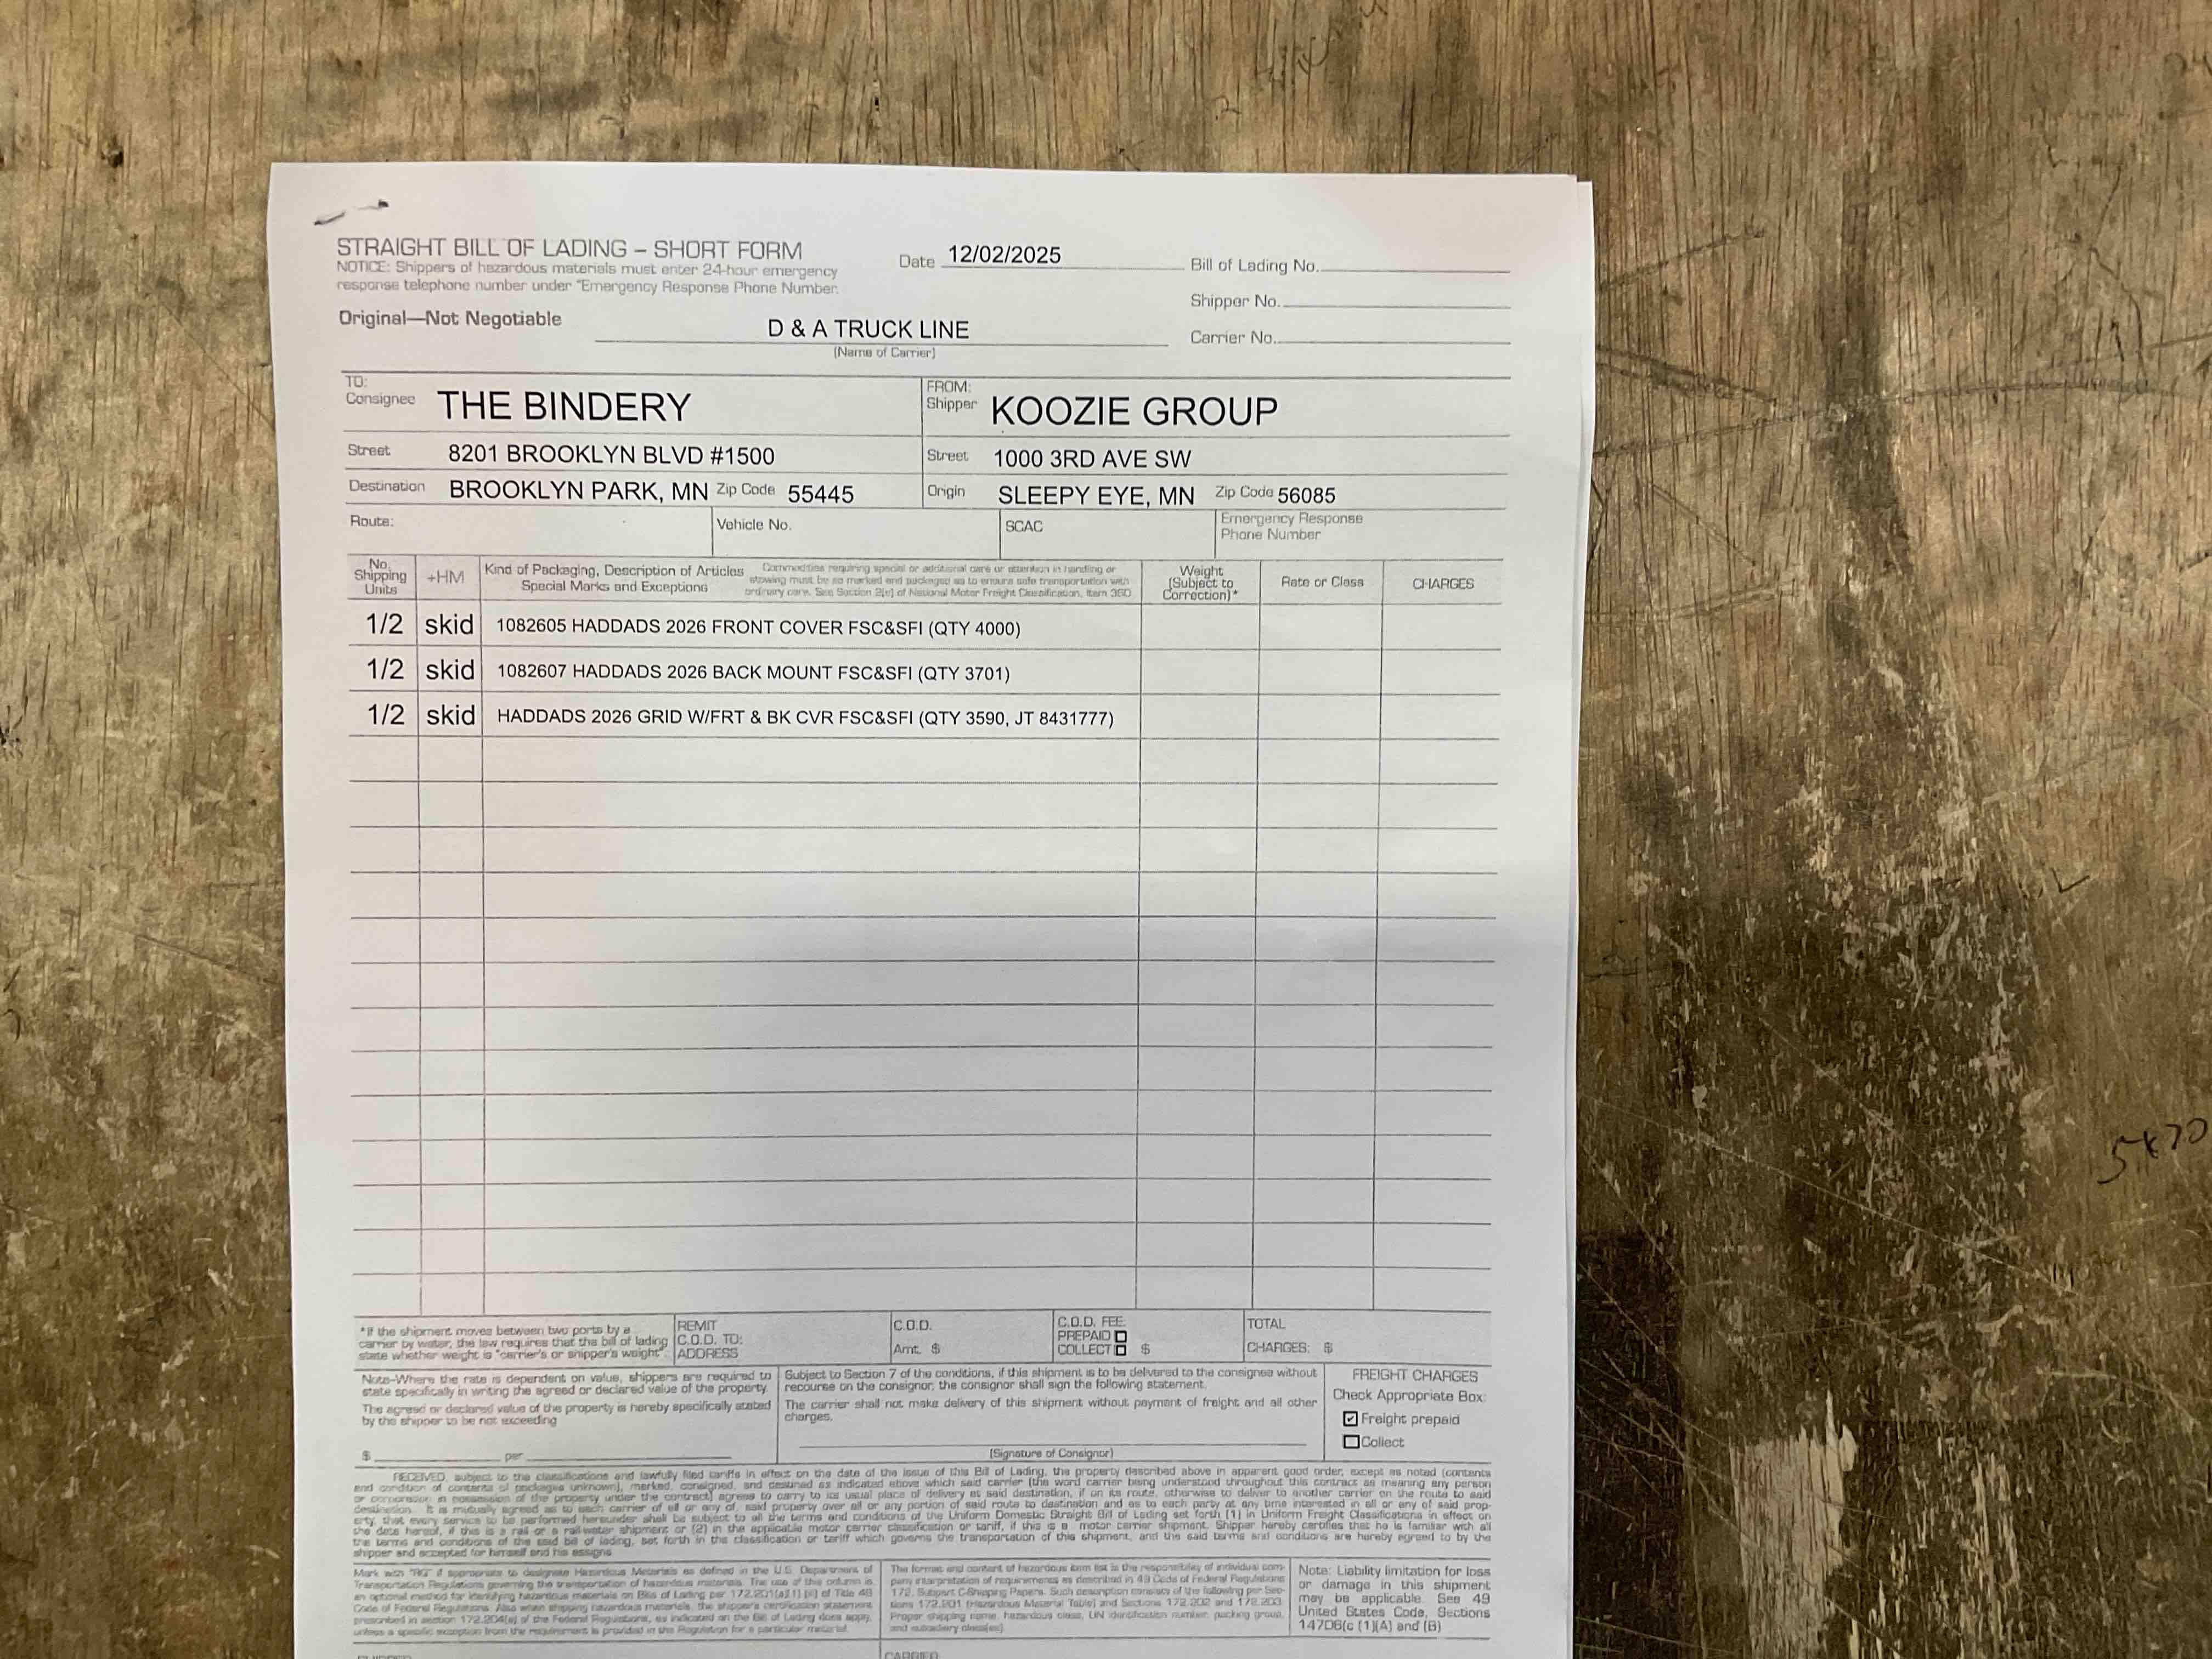 STRAIGHT BILL OF LADING – SHORT FORM
NOTICE: Shippers of hazardous materials must enter 24-hour emergency
response telephone number under "Emergency Response Phone Number.
Original—Not Negotiable
Date 12/02/2025
Bill of Lading No.
Shipper No.
Carrier No.
D & A TRUCK LINE
(Name of Carrier)
TO:
Consignee THE BINDERY
FROM:
Shipper KOOZIE GROUP
Street 8201 BROOKLYN BLVD #1500
Street 1000 3RD AVE SW
Destination BROOKLYN PARK, MN Zip Code 55445
Origin SLEEPY EYE, MN Zip Code 56085
Route:
Vehicle No.
SCAC
Emergency Response
Phone Number
No.
Shipping
Units
+HM
Kind of Packaging, Description of Articles
Special Marks and Exceptions
Commodities requiring special or additional care or attention in handling or
stowing must be so marked and packaged as to ensure safe transportation with
ordinary care. See Section 2(e) of National Motor Freight Classification, Item 360
Weight
(Subject to
Correction)*
Rate or Class
CHARGES
1/2 skid 1082605 HADDADS 2026 FRONT COVER FSC&SFI (QTY 4000)
1/2 skid 1082607 HADDADS 2026 BACK MOUNT FSC&SFI (QTY 3701)
1/2 skid HADDADS 2026 GRID W/FRT & BK CVR FSC&SFI (QTY 3590, JT 8431777)
*If the shipment moves between two ports by a
carrier by water, the law requires that the bill of lading
state whether weight is "carrier's or shipper's weight".
REMIT
C.O.D. TO:
ADDRESS
C.O.D.
Amt. $
C.O.D. FEE:
PREPAID
COLLECT $
TOTAL
CHARGES: $
Note–Where the rate is dependent on value, shippers are required to
state specifically in writing the agreed or declared value of the property.
The agreed or declared value of the property is hereby specifically stated
by the shipper to be not exceeding
$ per
Subject to Section 7 of the conditions, if this shipment is to be delivered to the consignee without
recourse on the consignor, the consignor shall sign the following statement.
The carrier shall not make delivery of this shipment without payment of freight and all other
charges.
(Signature of Consignor)
FREIGHT CHARGES
Check Appropriate Box:
Freight prepaid
Collect
RECEIVED, subject to the classifications and lawfully filed tariffs in effect on the date of the issue of this Bill of Lading, the property described above in apparent good order, except as noted (contents
and condition of contents of packages unknown), marked, consigned, and destined as indicated above which said carrier (the word carrier being understood throughout this contract as meaning any person
or corporation in possession of the property under the contract) agrees to carry to its usual place of delivery at said destination, if on its route, otherwise to deliver to another carrier on the route to said
destination. It is mutually agreed as to each carrier of all or any of, said property over all or any portion of said route to destination and as to each party at any time interested in all or any of said prop-
erty, that every service to be performed hereunder shall be subject to all the terms and conditions of the Uniform Domestic Straight Bill of Lading set forth (1) in Uniform Freight Classifications in effect on
the date hereof, if this is a rail or a rail-water shipment or (2) in the applicable motor carrier classification or tariff, if this is a motor carrier shipment. Shipper hereby certifies that he is familiar with all
the terms and conditions of the said bill of lading, set forth in the classification or tariff which governs the transportation of this shipment, and the said terms and conditions are hereby agreed to by the
shipper and accepted for himself and his assigns
Mark with "RQ" if appropriate to designate Hazardous Materials as defined in the U.S. Department of
Transportation Regulations governing the transportation of hazardous materials. The use of this column is
an optional method for identifying hazardous materials on Bills of Lading per 172.201(a)(1)(iii) of Title 49
Code of Federal Regulations. Also when shipping hazardous materials, the shipper's certification statement
prescribed in section 172.204(a) of the Federal Regulations, as indicated on the Bill of Lading does apply,
unless a specific exception from the requirement is provided in the Regulation for a particular material.
The format and content of hazardous item list is the responsibility of individual com-
pany interpretation of requirements as described in 49 Code of Federal Regulations
172, Subpart C-Shipping Papers. Such description consists of the following per Sec-
tions 172.201 (Hazardous Material Table) and Sections 172.202 and 172.203:
Proper shipping name, hazardous class, UN identification number, packing group,
and subsidiary class(es)
Note: Liability limitation for loss
or damage in this shipment
may be applicable. See 49
United States Code, Sections
14706(c (1)(A) and (B)
CARRIER